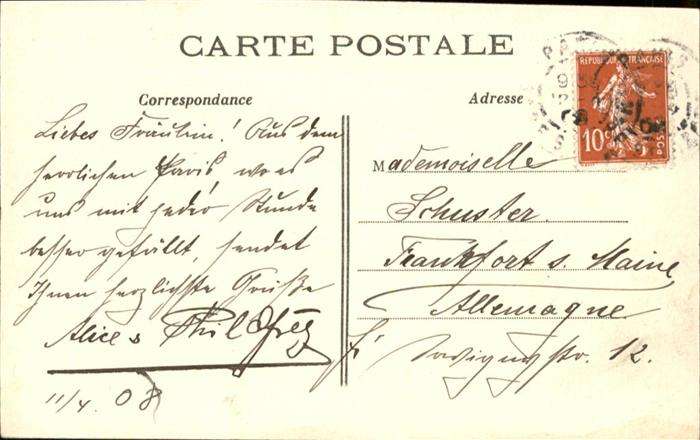 CARTE POSTALE
Correspondance
Adresse
REPUBLIQUE FRANÇAISE
10 c
POSTES
Liebes Fräulein! Aus dem
herrlichen Paris, wo es
uns mit jeder Stunde
besser gefällt, sendet
Ihnen herzlichste Grüße
Alice & Phil
11/4. 08
Mademoiselle
Schuster
Frankfort s. Maine
Allemagne
Savignystr. 12.